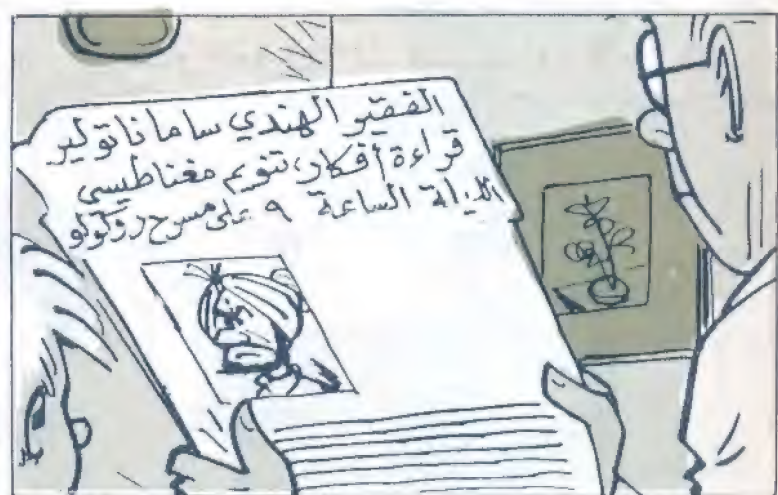 الفقير الهندي ساما ناتولير
قراءة أفكار، تنويم مغناطيسي
الليلة الساعة ٩ على مسرح روكولو